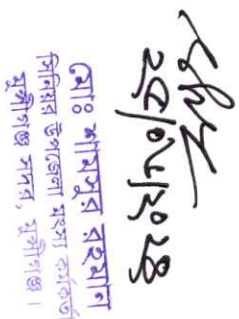 ২৫/০২/২০২৪
মোঃ শামসুর রহমান
সিনিয়র উপজেলা মৎস্য কর্মকর্তা
মুন্সীগঞ্জ সদর, মুন্সীগঞ্জ।